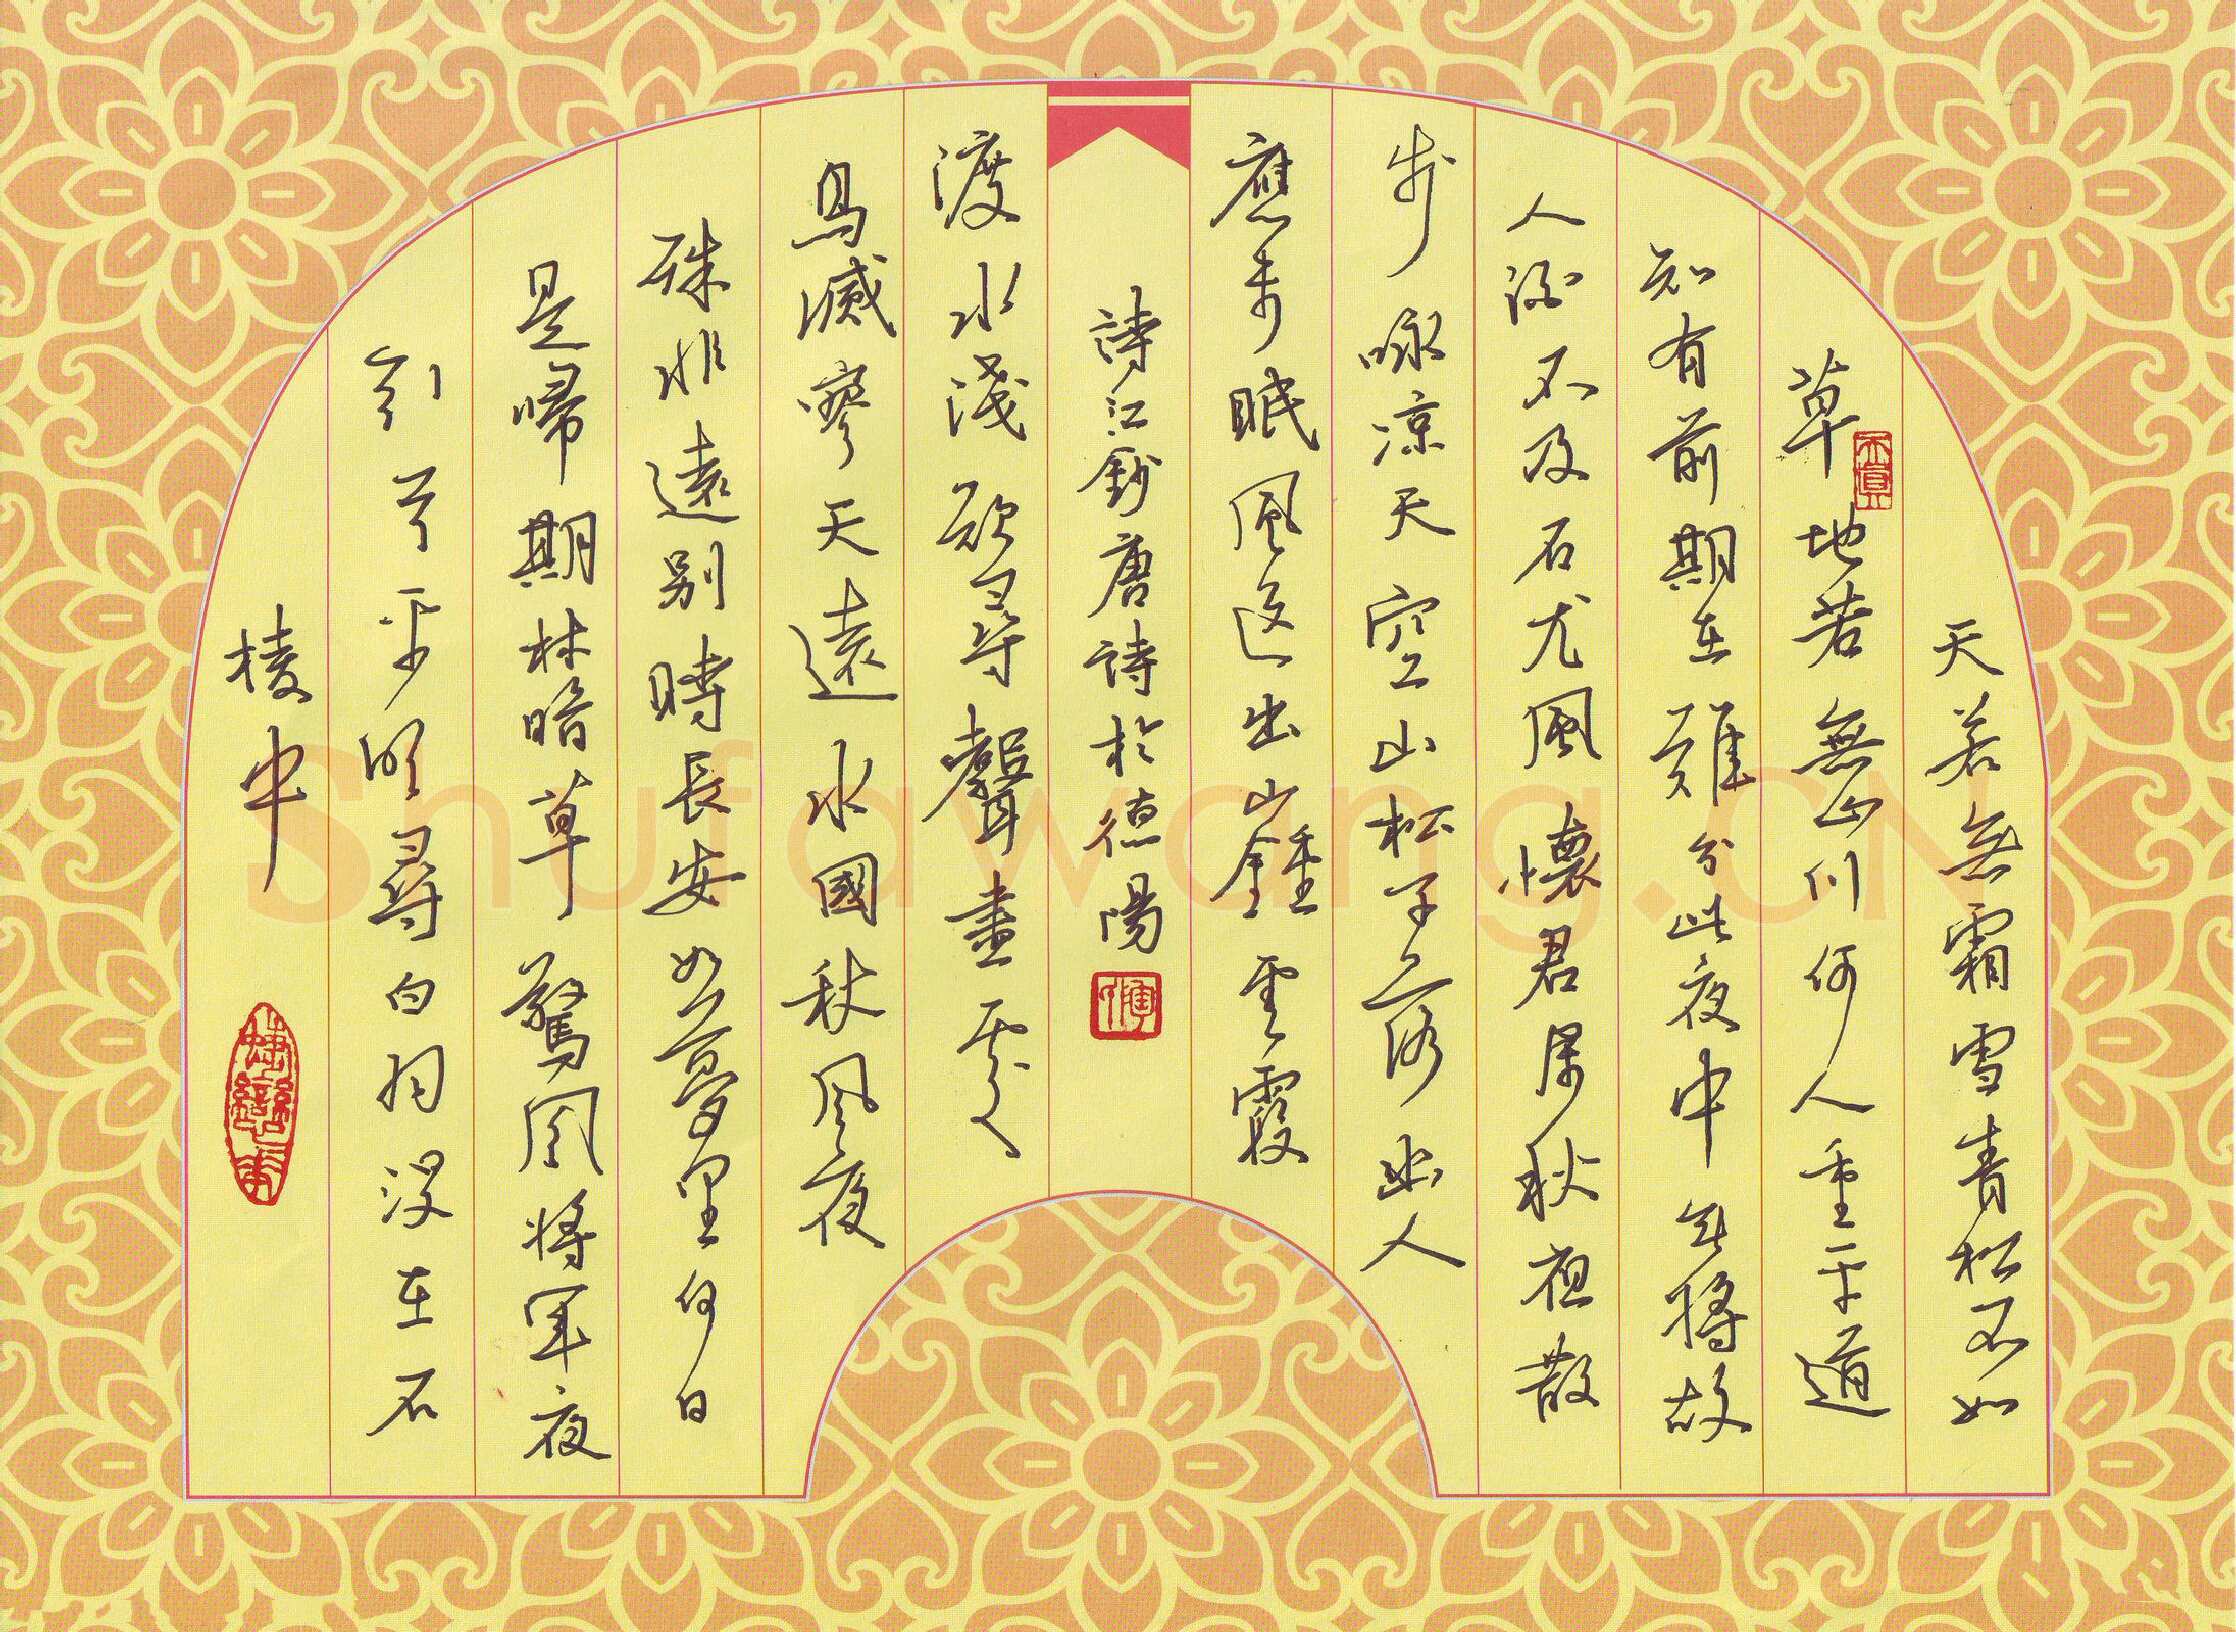 天若無霜雪青松不如
草地若無山川何人重平道
知有前期在難分此夜中無將故
人酒不及石尤風懷君屬秋夜散
步咏凉天空山松子落幽人
應未眠風返出山鍾雲霞
詩江鈔唐詩於德陽
渡水淺欲尋聲盡處
鳥滅寥天遠水國秋風夜
殊非遠別時長安如夢里何日
是歸期林暗草驚風將軍夜
引弓平明尋白羽沒在石
棱中
Shufawang.CN